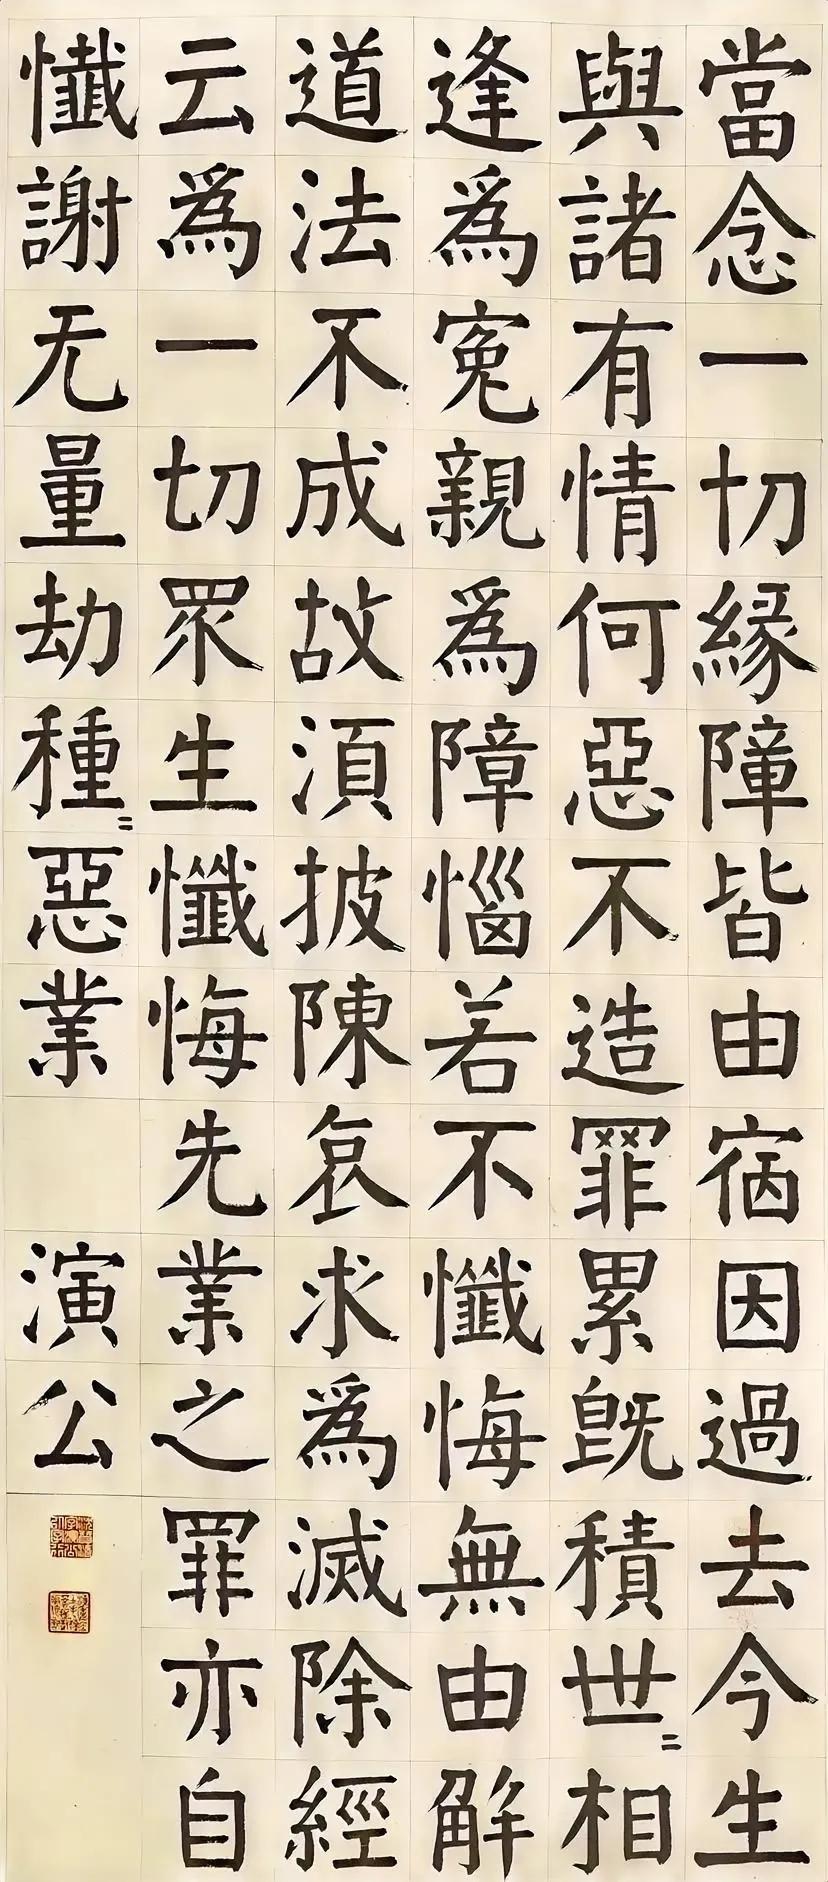 當念一切緣障皆由宿因過去今生
與諸有情何惡不造罪累既積世〻相
逢為冤親為障惱若不懺悔無由解
道法不成故須披陳哀求為滅除經
云為一切眾生懺悔先業之罪亦自
懺謝无量劫種〻惡業 演公